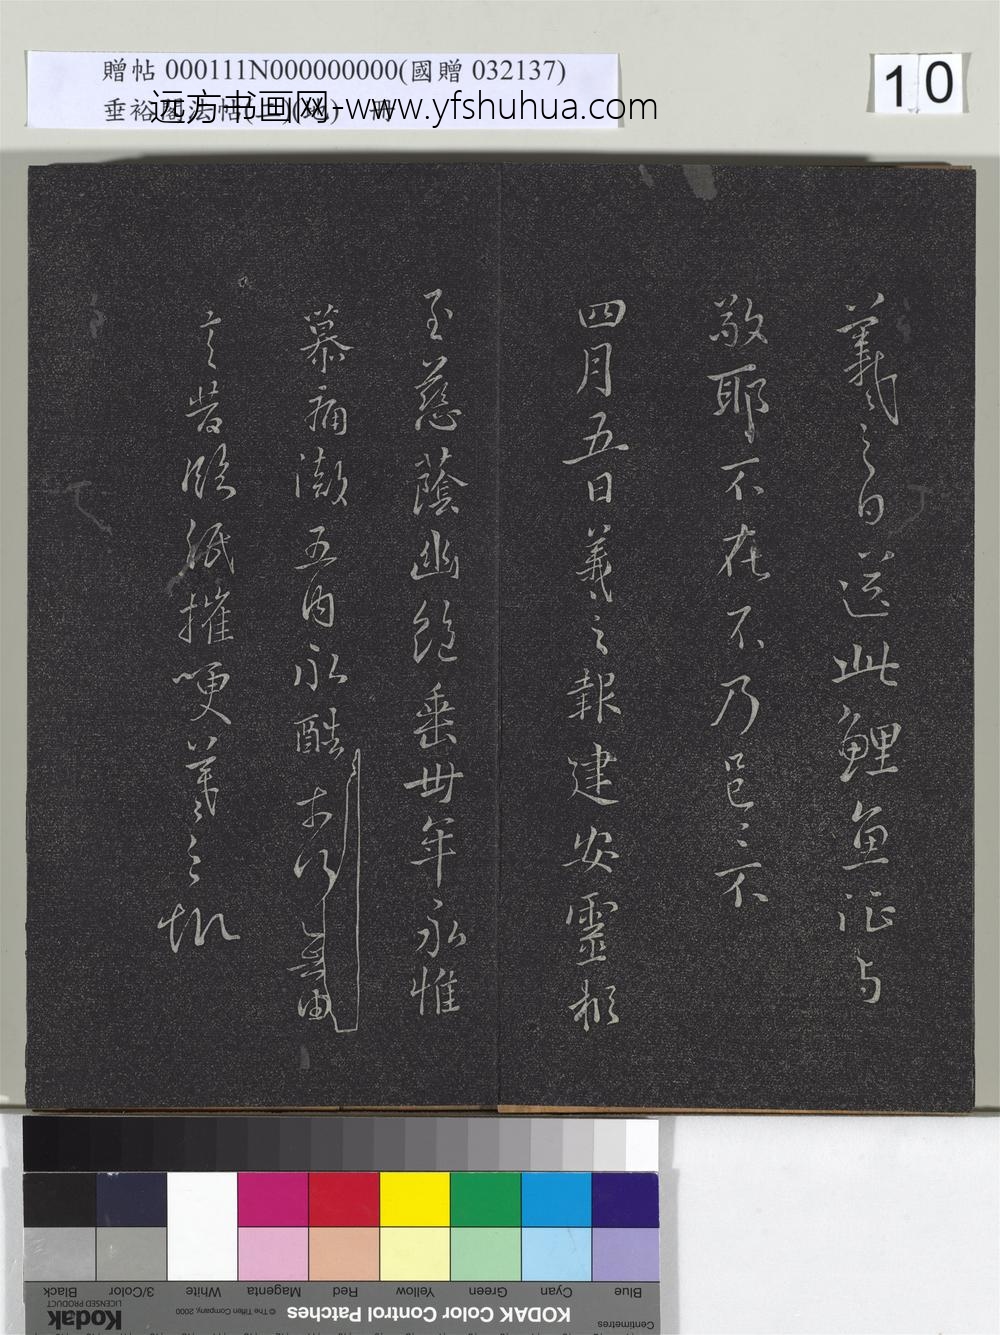 贈帖 000111N000000000(國贈 032137)
10
远方书画网-www.yfshuhua.com
羲之白送此鯉魚征与
敬耶不在不乃邑邑不
四月五日羲之報建安靈柩
至慈蔭幽絕垂卅年永惟
慕痛徹五內永酷奈何無由
言昔臨紙摧哽羲之
Blue
Cyan
Green
Yellow
Red
Magenta
White
3/Color
Black
Centimetres
KODAK Color Control Patches
© The Tiffen Company, 2000
Kodak
LICENSED PRODUCT